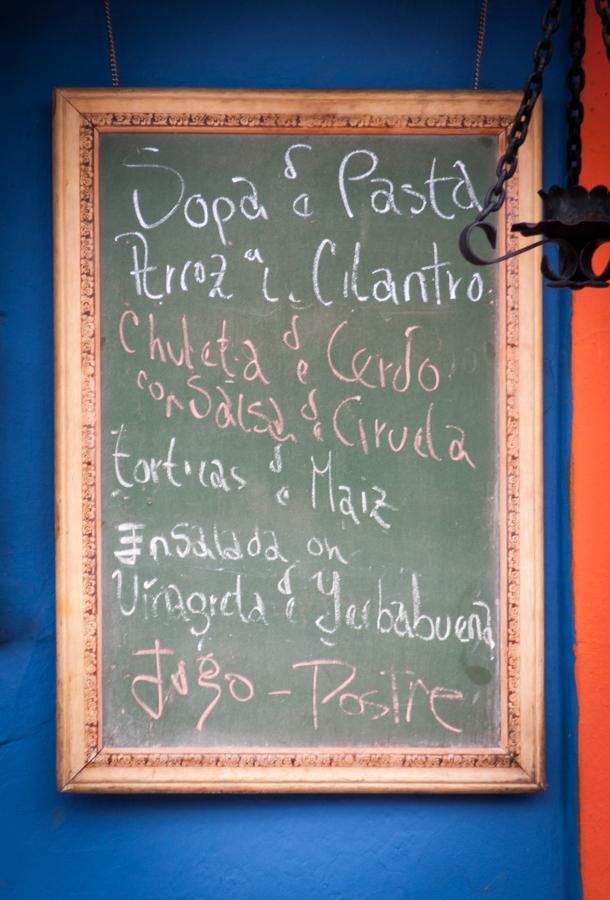 Sopa de Pasta
Arroz al Cilantro
Chuleta de Cerdo
con Salsa de Ciruela
torticas de Maiz
Ensalada on
Vinagreta de Yerbabuena
Jugo - Postre